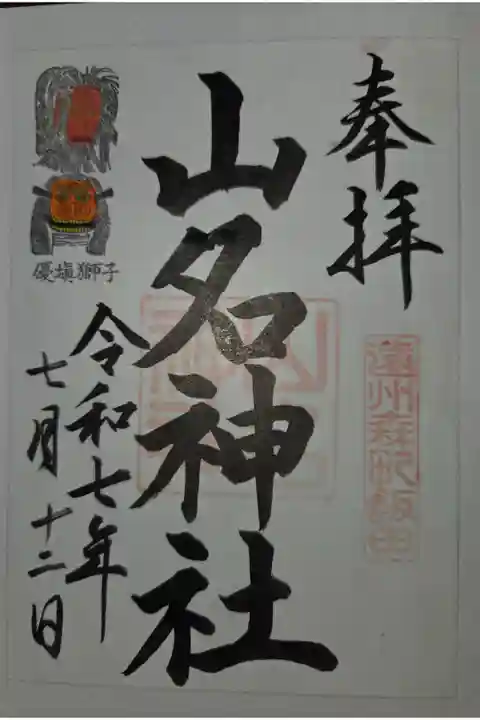 奉拝
遠州森町飯田
山名神社
令和七年
七月十二日
優塡獅子